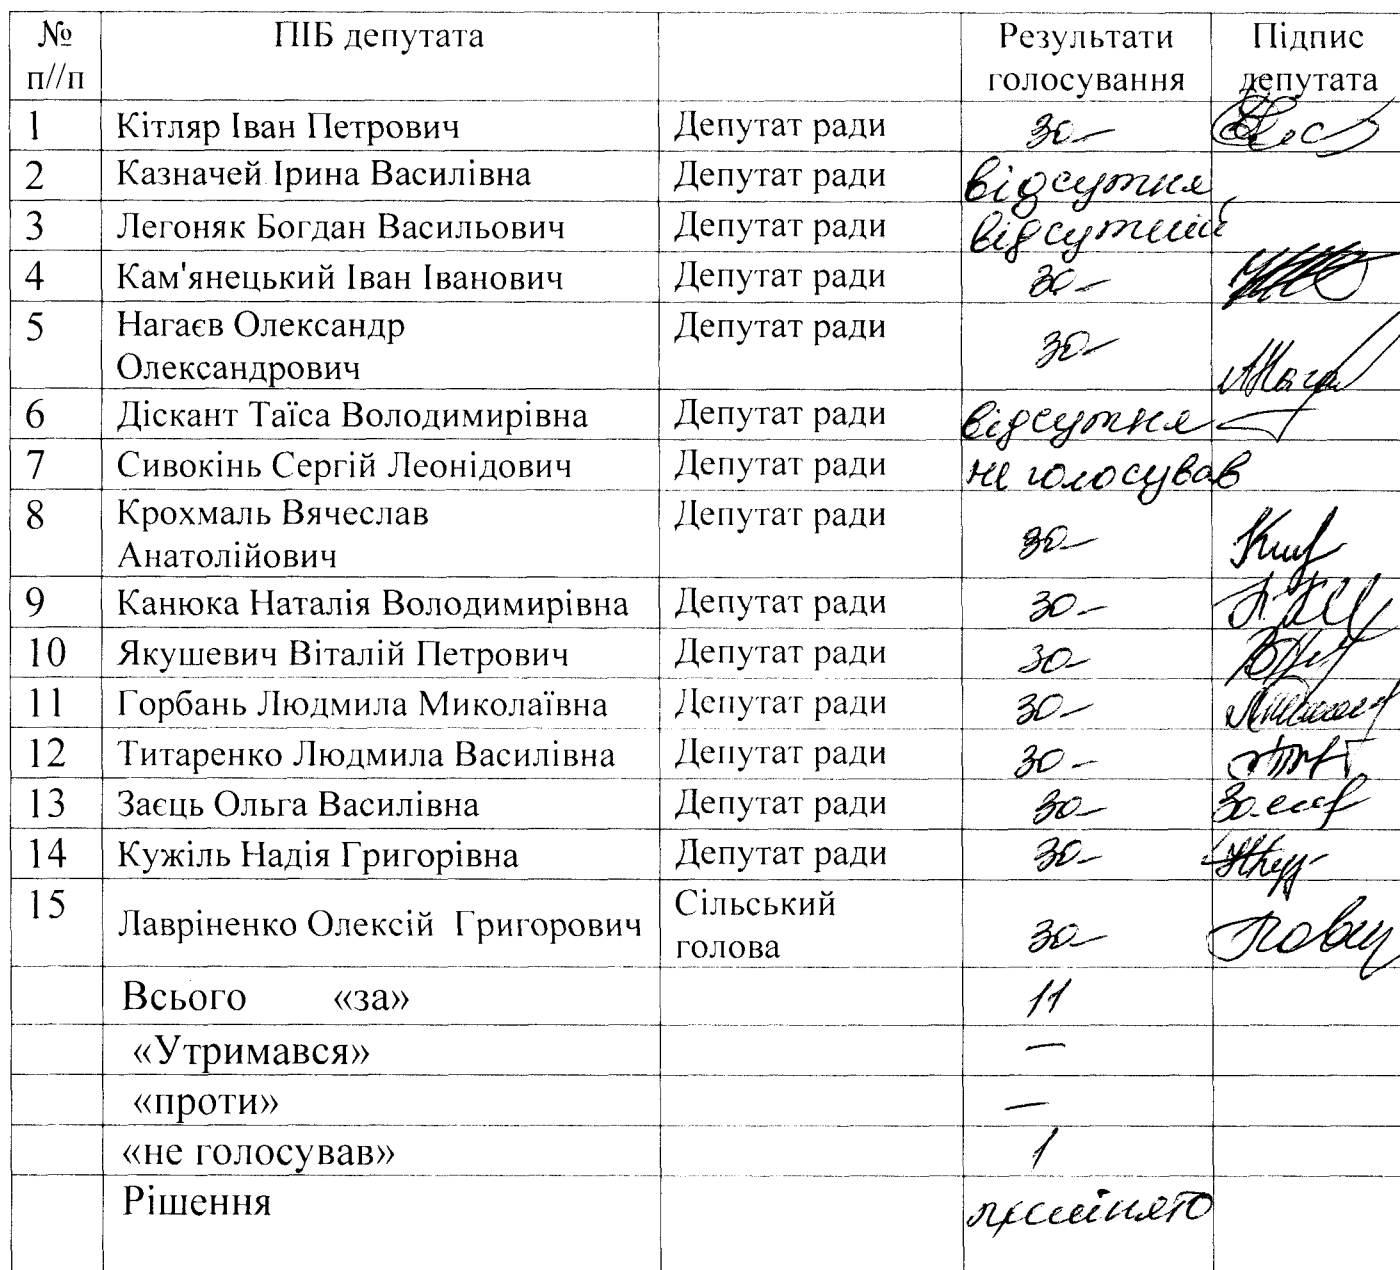 № ПІБ депутата Результати Підпис
п//п голосування депутата
1 Кітляр Іван Петрович Депутат ради за
2 Казначей Ірина Василівна Депутат ради відсутня
3 Легоняк Богдан Васильович Депутат ради відсутній
4 Кам'янецький Іван Іванович Депутат ради за
5 Нагаєв Олександр Депутат ради за
Олександрович
6 Діскант Таїса Володимирівна Депутат ради відсутня
7 Сивокінь Сергій Леонідович Депутат ради не голосував
8 Крохмаль Вячеслав Депутат ради за
Анатолійович
9 Канюка Наталія Володимирівна Депутат ради за
10 Якушевич Віталій Петрович Депутат ради за
11 Горбань Людмила Миколаївна Депутат ради за
12 Титаренко Людмила Василівна Депутат ради за
13 Заєць Ольга Василівна Депутат ради за
14 Кужіль Надія Григорівна Депутат ради за
15 Лавріненко Олексій Григорович Сільський за
голова
Всього «за» 11
«Утримався» —
«проти» —
«не голосував» 1
Рішення прийнято